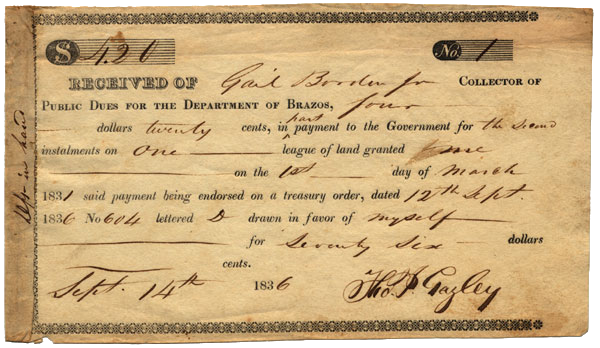 $ 4.20 No. 1
RECEIVED OF Gail Borden Jr COLLECTOR OF
PUBLIC DUES FOR THE DEPARTMENT OF BRAZOS, four
dollars twenty cents, in part payment to the Government for the second
instalments on one league of land granted me
on the 1st day of March
1831 said payment being endorsed on a treasury order, dated 12th Sept.
1836 No 604 lettered D drawn in favor of myself
for Seventy Six dollars
cents.
Sept. 14th 1836 Tho. J Gazley
in hand